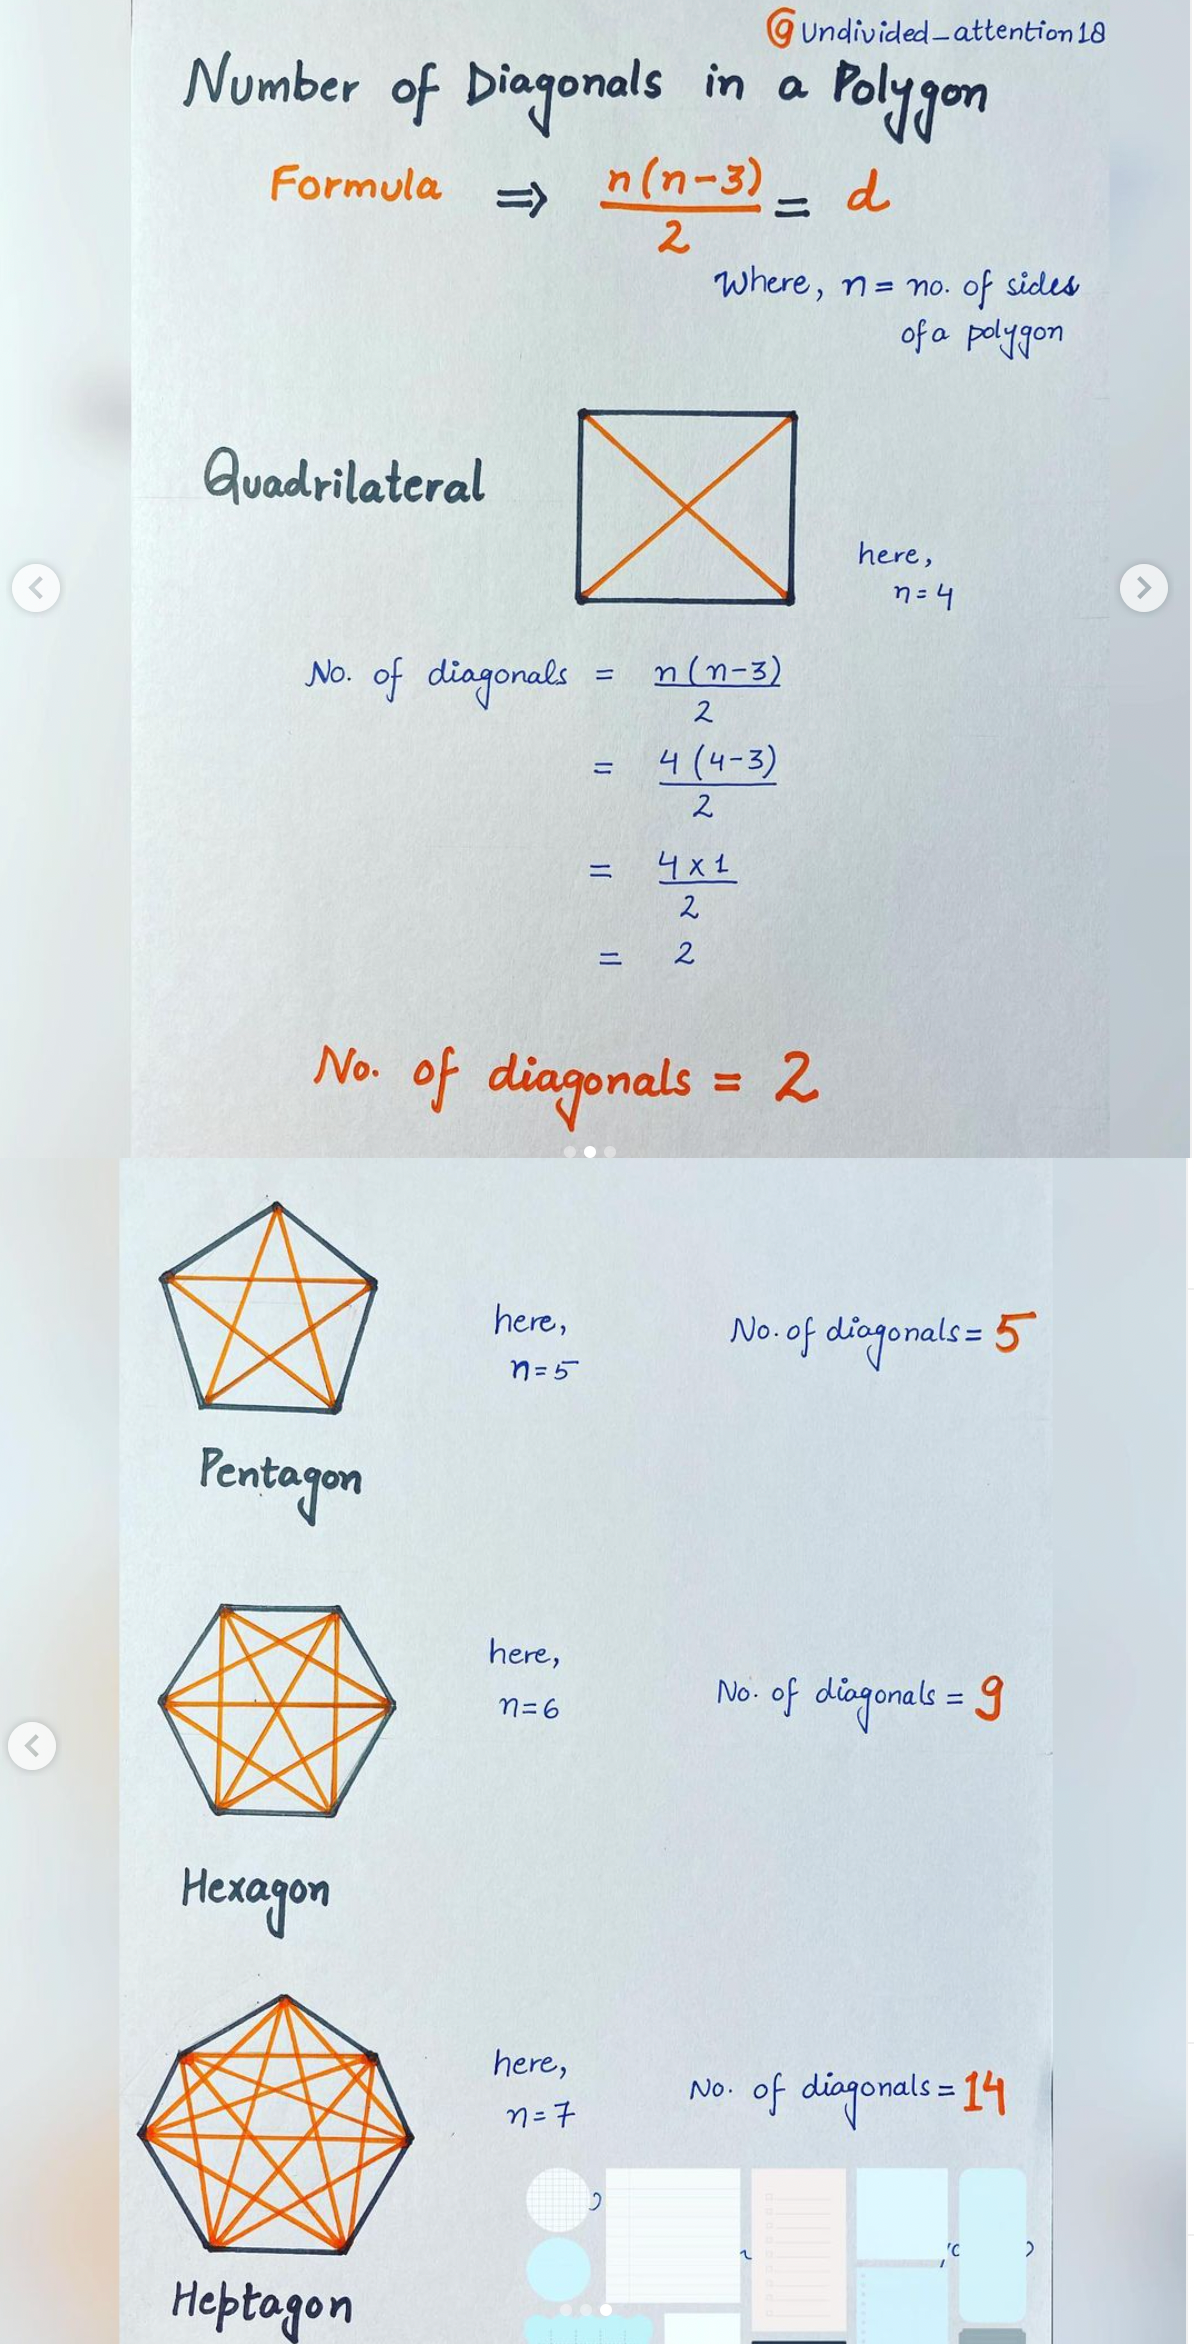 @undivided_attention18
Number of Diagonals in a Polygon
Formula ⇒ n(n-3)/2 = d
Where, n = no. of sides
of a polygon
Quadrilateral
here,
n=4
No. of diagonals = n(n-3)/2
= 4(4-3)/2
= 4x1/2
= 2
No. of diagonals = 2
here,
n=5
No. of diagonals = 5
Pentagon
here,
n=6
No. of diagonals = 9
Hexagon
here,
n=7
No. of diagonals = 14
Heptagon